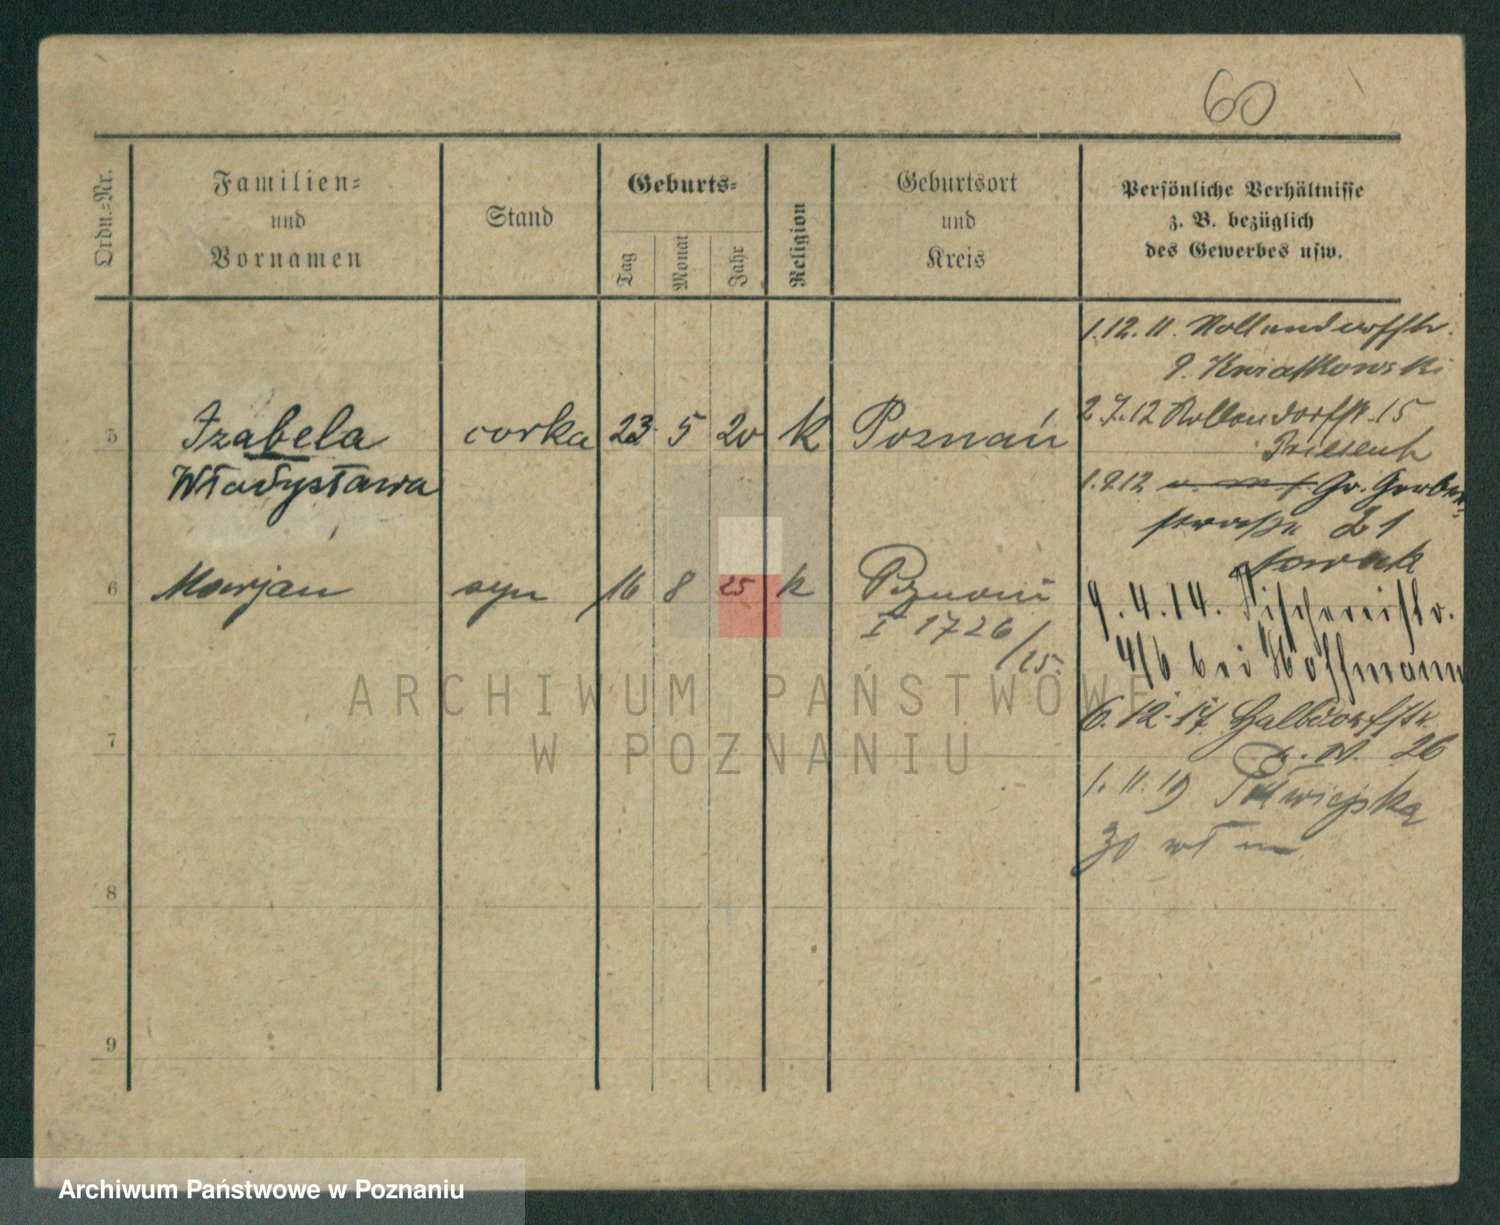 60
Ordn.-Nr.
Familien-
und
Vornamen
Stand
Geburts-
Tag
Monat
Jahr
Religion
Geburtsort
und
Kreis
Persönliche Verhältnisse
z. B. bezüglich
des Gewerbes usw.
5 Izabela corka 23 5 20 k Poznań
Władysława
6 Marjan syn 16 8 25 k Poznań
I 1726/25.
7
8
9
1.12.11.
9. Kwiatkowski
2.7.12 15
1.9.12 Gr. Gerber-
straße 21
Nowak
9.4.14. Fischereistr.
4/6 bei Hoffmann
6.12.17 Halbdorfstr.
26
1.11.19 Półwiejska
30
ARCHIWUM PAŃSTWOWE
W POZNANIU
Archiwum Państwowe w Poznaniu